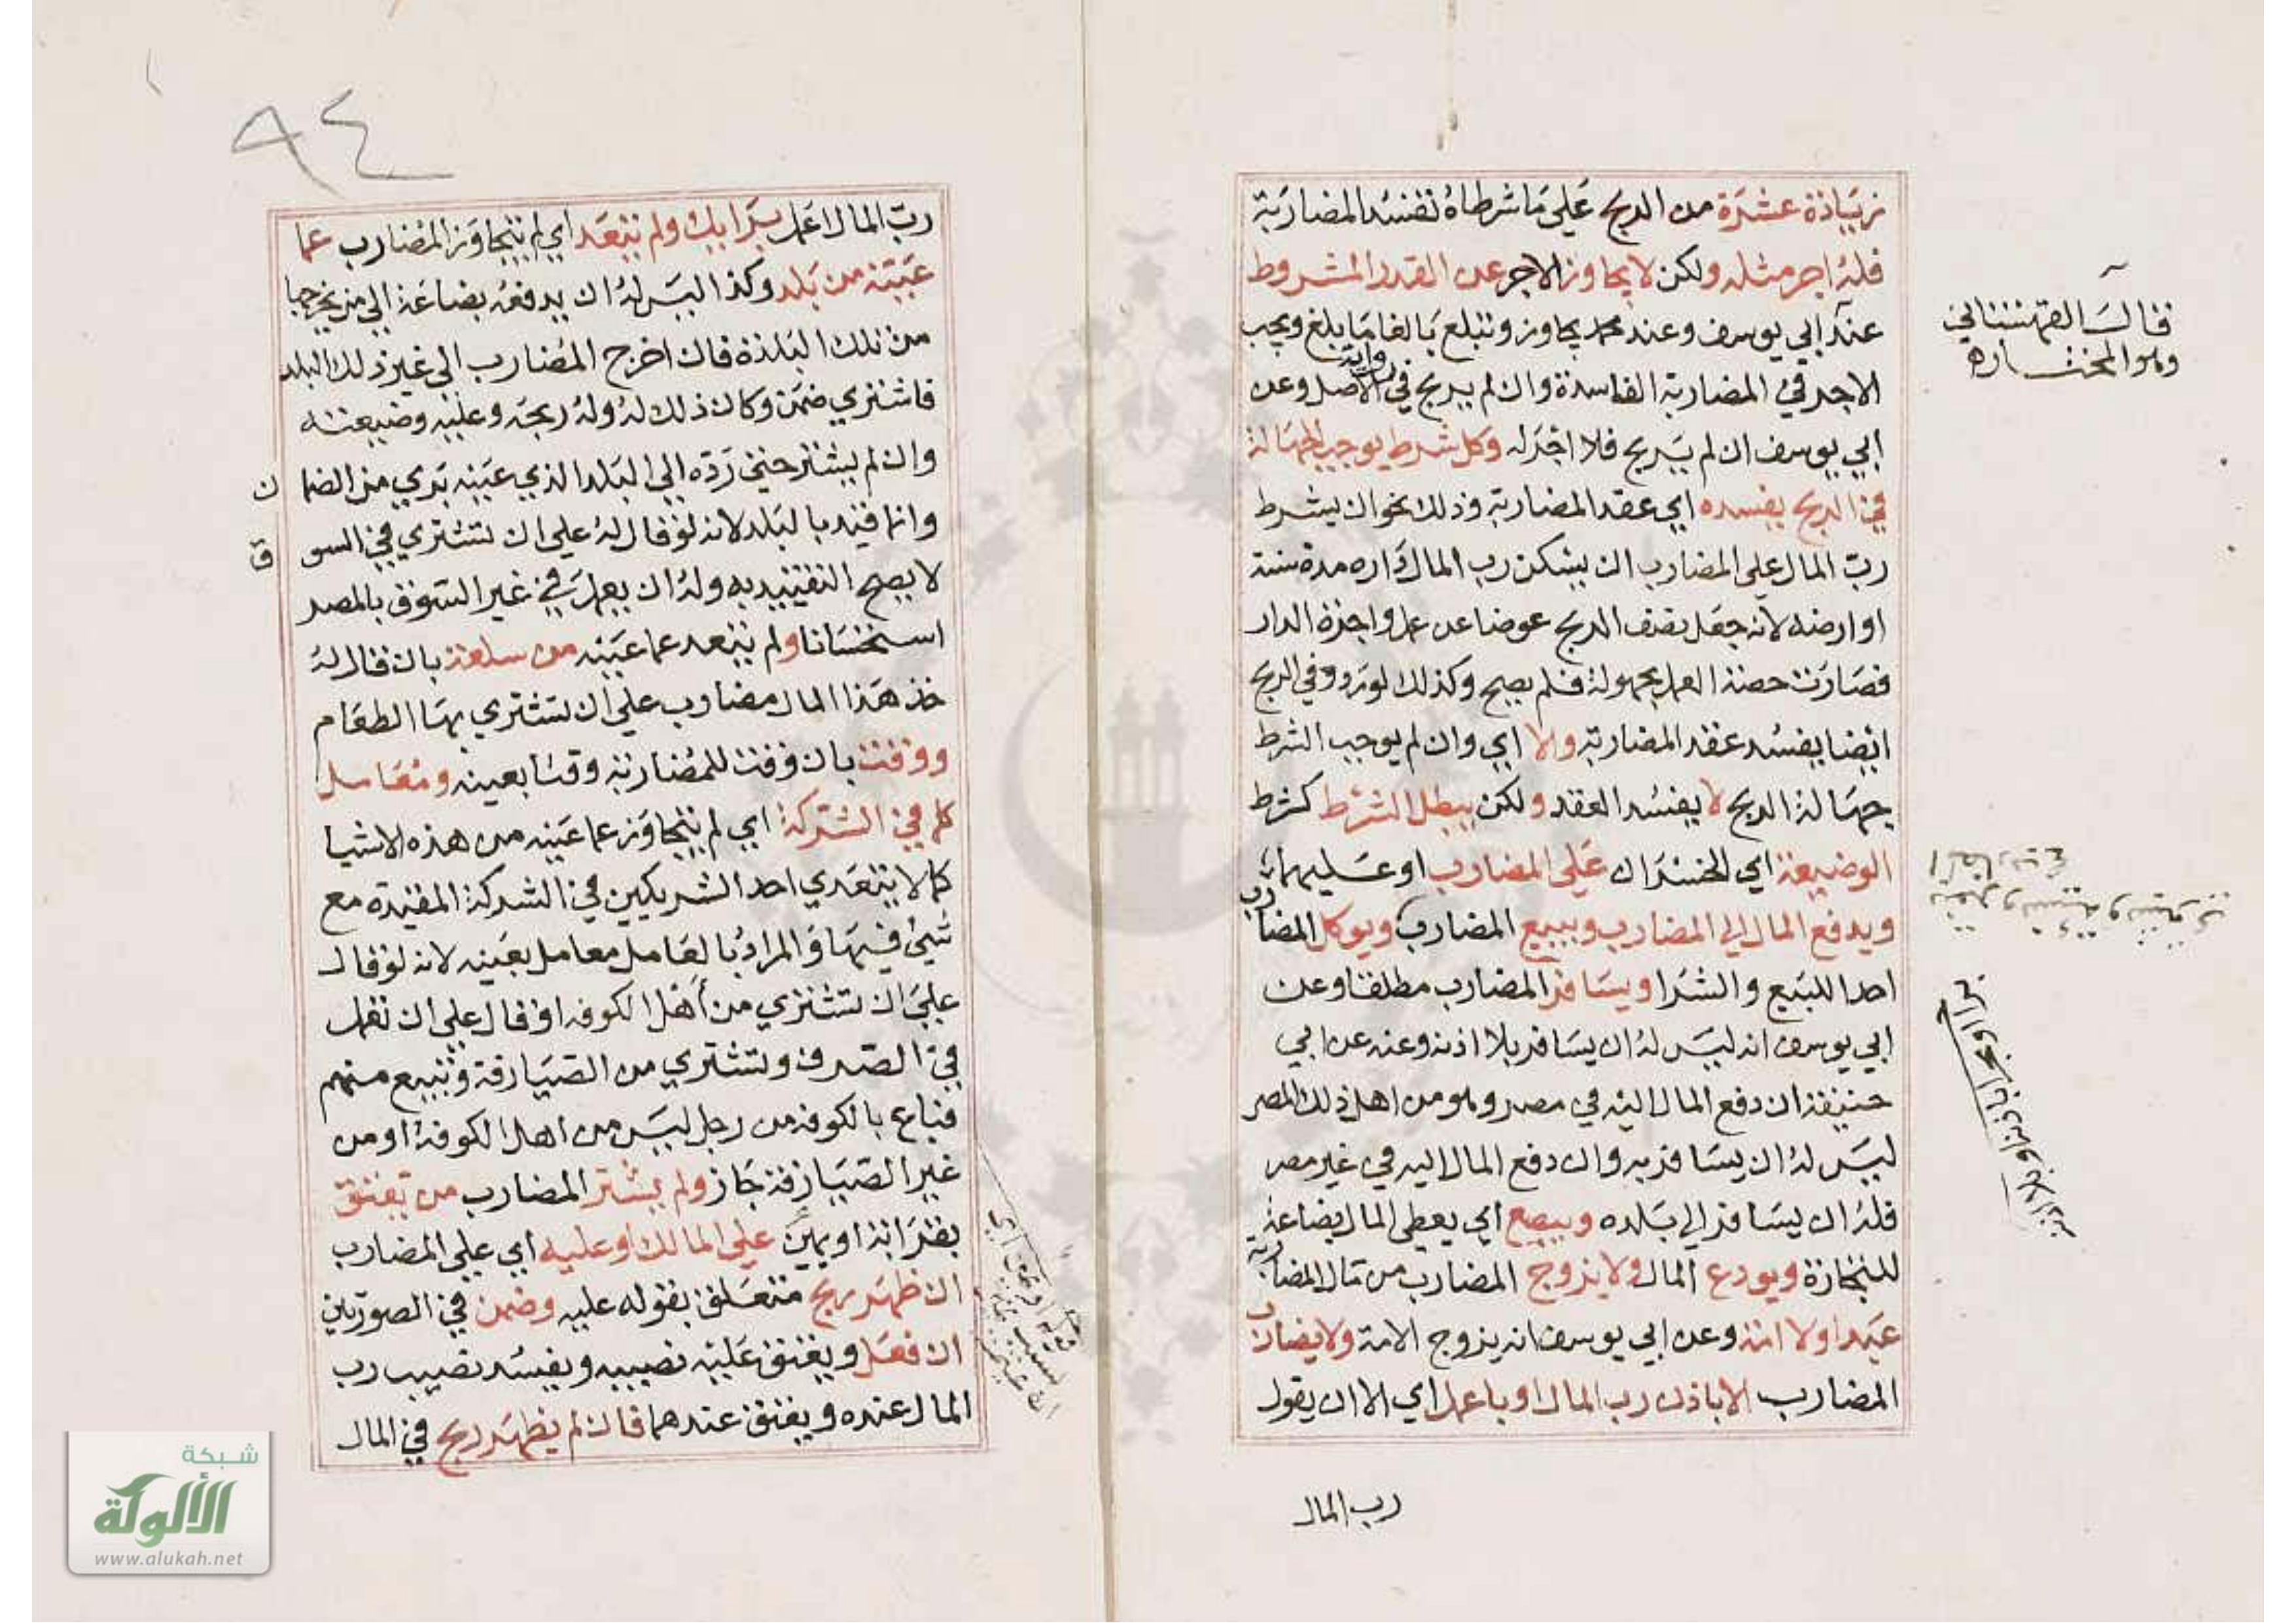 زيادة عشرة من الربح على ما شرطاه تفسد المضاربة
فله اجر مثله ولكن لا يجاوز الاجر عن القدر المشروط
عند ابي يوسف وعند محمد يجاوز وتبلغ بالغا ما بلغ ويجب
الاجر في المضاربة الفاسدة وان لم يربح في رواية الاصل وعن
ابي يوسف ان لم يربح فلا اجر له وكل شرط يوجب الجهالة
في الربح يفسده اي عقد المضاربة وذلك نحو ان يشرط
رب المال على المضارب ان يسكن رب المال داره مدة سنة
او ارضه لانه جعل نصف الربح عوضا عن عمله واجرة الدار
فصارت حصة العمل مجهولة فلم يصح وكذلك لو تردد في الربح
ايضا يفسد عقد المضاربة والا اي وان لم يوجب الشرط
جهالة الربح لا يفسد العقد ولكن يبطل الشرط كشرط
الوضيعة اي الخسران على المضارب او عليهما
ويدفع المال الى المضارب ويبيع المضارب ويوكل المضارب
احدا للبيع والشرا ويسافر المضارب مطلقا وعن
ابي يوسف انه ليس له ان يسافر بلا اذنه وعنه عن ابي
حنيفة ان دفع المال اليه في مصر وهو من اهل ذلك المصر
ليس له ان يسافر به وان دفع المال اليه في غير مصر
فله ان يسافر الى بلده ويبضع اي يعطى المال بضاعة
للتجارة ويودع المال ولا يزوج المضارب من مال المضاربة
عبدا ولا امة وعن ابي يوسف انه يزوج الامة ولا يضارب
المضارب الا باذن رب المال او باعمل اي الا ان يقول
رب المال
قال القهستاني
وهو المختار
برا او بحرا باذنه او بلا اذنه
٩٤
رب المال اعمل برايك ولم يتعد اي لم يتجاوز المضارب عما
عينه من بلد وكذا ليس له ان يدفعه بضاعة الى من يخرجها
من تلك البلدة فان اخرج المضارب الى غير ذلك البلد
فاشترى ضمن وكان ذلك له وله ربحه وعليه وضيعته
وان لم يشتر حتى رده الى البلد الذي عينه بري من الضمان
وانما قيد بالبلد لانه لو قال له على ان تشتري في السوق
لا يصح التقييد به وله ان يعمل في غير السوق بالمصر
استحسانا ولم يتعد عما عينه من سلعة بان قال له
خذ هذا المال مضارب على ان تشتري بها الطعام
ووقت بان وقت للمضاربة وقتا بعينه ومعامل
كما في الشركة اي لم يتجاوز عما عينه من هذه الاشيا
كما لا يتعدي احد الشريكين في الشركة المقيدة مع
شيئ فيها والمراد بالعامل معامل بعينه لانه لو قال
علي ان تشتري من أهل الكوفة او قال على ان تعمل
في الصرف وتشتري من الصيارفة وتبيع منهم
فباع بالكوفة من رجل ليس من اهل الكوفة او من
غير الصيارفة جاز ولم يشتر المضارب من يعتق
بقرابة او يمين على المالك او عليه اي على المضارب
ان ظهر ربح متعلق بقوله عليه وضمن في الصورتين
ان فعل ويعتق عليه نصيبه ويفسد نصيب رب
المال عنده ويعتق عندهما فان لم يظهر ربح في المال
شبكة
الألوكة
www.alukah.net